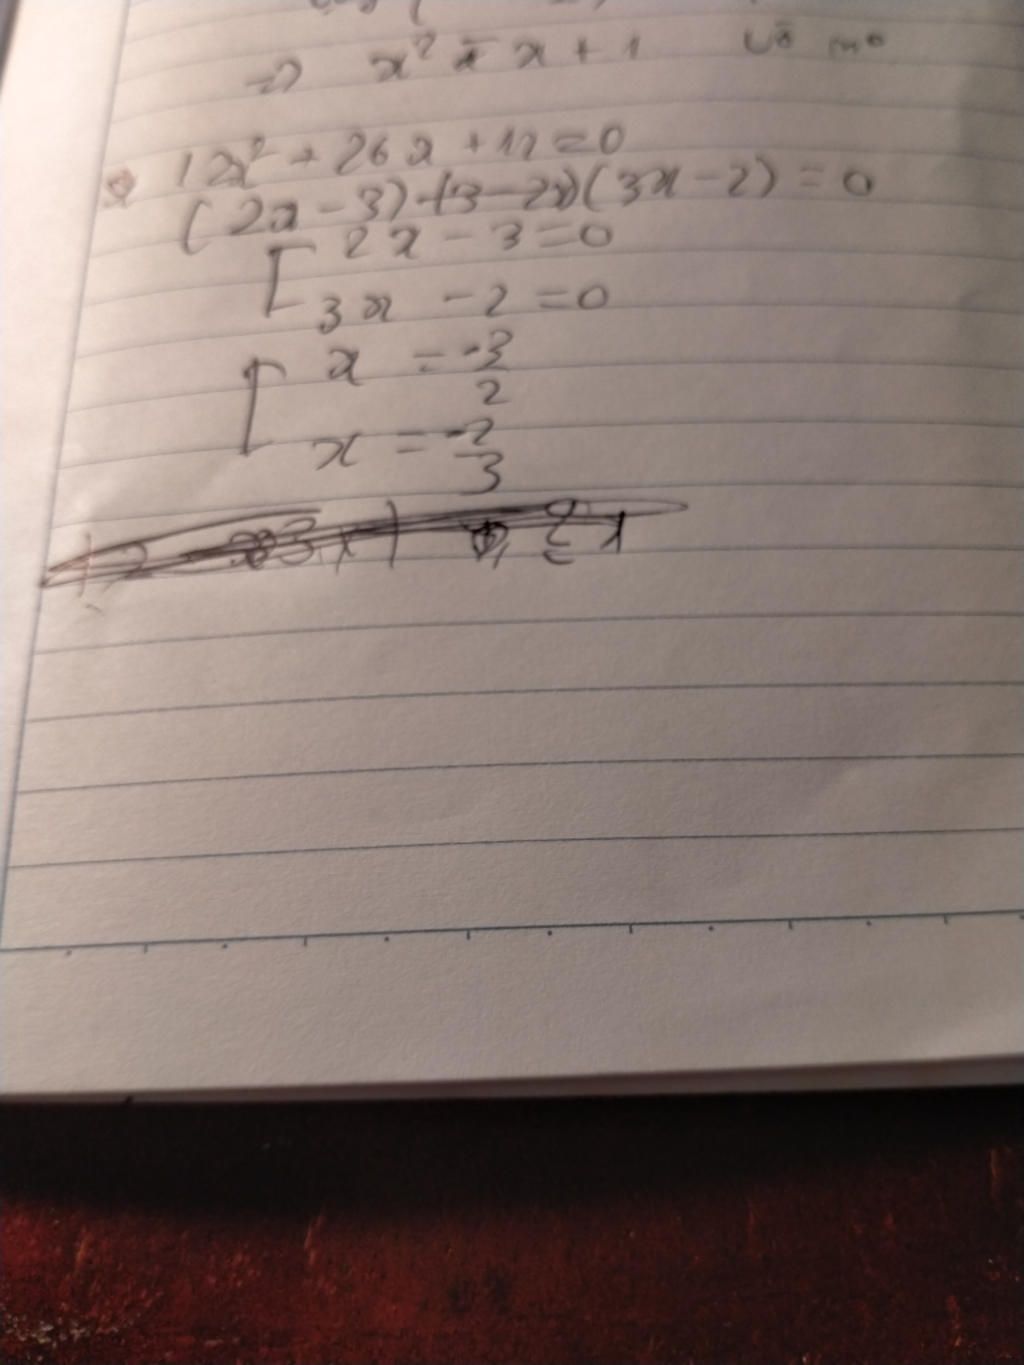 => x² - x + 1 vô n
12x² + 26x + 12 = 0
(2x - 3) + (3 - 2x)(3x - 2) = 0
[ 2x - 3 = 0
3x - 2 = 0
[ x = -3/2
x = -2/3